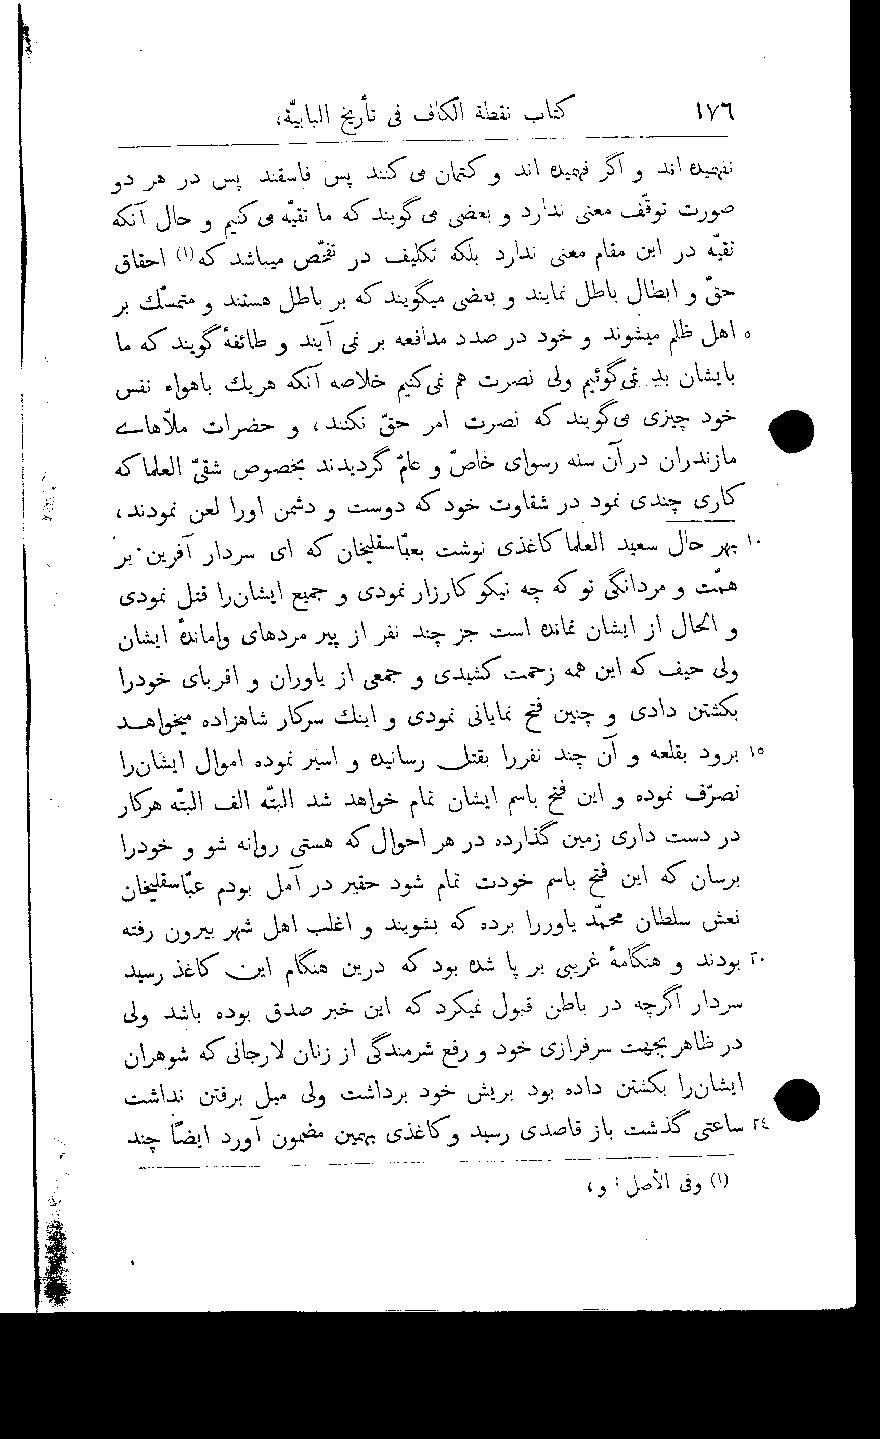 ١٧٦ كتاب نقطة الكاف فى تأريخ البابيّة،
نفهميده اند و اگر فهميده اند و كتمان مى‌كنند پس فاسقند پس در هر دو
صورت توقّف معنى ندارد و بعضى مى‌گويند كه ما تقيّه مى‌كنيم و حال آنكه
تقيّه در اين مقام معنى ندارد بلكه تكليف در تفحّص ميباشد كه (١) احقاق
حقّ و ابطال باطل نمايند و بعضى ميگويند كه بر باطل هستند و متمسّك بر
٥ اهل ظلم ميشوند و خود در صدد مدافعه بر نمى آيند و طائفهٔ گويند كه ما
بايشان بد نمى‌گوئيم ولى نصرت هم نمى‌كنيم خلاصه آنكه هريك باهواء نفس
خود چيزى مى‌گويند كه نصرت امر حقّ نكنند، و حضرات ملّاهاى
مازندران در آن سنه رسواى خاصّ و عامّ گرديدند بخصوص شقىّ العلما كه
كارى چندى نمود در شقاوت خود كه دوست و دشمن اورا لعن نمودند،
١٠ بهر حال سعيد العلما كاغذى نوشت بعبّاسقليخان كه اى سردار آفرين بر
همّت و مردانگى تو كه چه نيكو كارزار نمودى و جميع ايشان‌را قتل نمودى
و الحال از ايشان نمانده است جز چند نفر از پير مردهاى واماندهٔ ايشان
ولى حيف كه اين همه زحمت كشيدى و جمعى از ياوران و اقرباى خودرا
بكشتن دادى و چنين فتح نمايانى نمودى و اينك سركار شاهزاده ميخواهد
١٥ برود بقلعه و آن چند نفررا بقتل رسانيده و اسير نموده اموال ايشان‌را
تصرّف نموده و اين فتح باسم ايشان تمام خواهد شد البتّه الف البتّه هركار
در دست دارى زمين گذارده در هر احوال كه هستى روانه شو و خودرا
برسان كه اين فتح باسم خودت تمام شود حقير در آمل بودم عبّاسقليخان
نعش سلطان محمّد ياوررا برده كه بشويند و اغلب اهل شهر بيرون رفته
٢٠ بودند و هنگامهٔ غريبى بر پا شده بود كه درين هنگام اين كاغذ رسيد
سردار اگرچه در باطن قبول نميكرد كه اين خبر صدق بوده باشد ولى
در ظاهر بجهت سرفرازى خود و رفع شرمندگى از زنان لارجانى كه شوهران
ايشان‌را بكشتن داده بود بريش خود برداشت ولى ميل برفتن نداشت
٢٤ ساعتى گذشت باز قاصدى رسيد و كاغذى بهمين مضمون آورد ايضاً چند
(١) وفى الأصل : و،